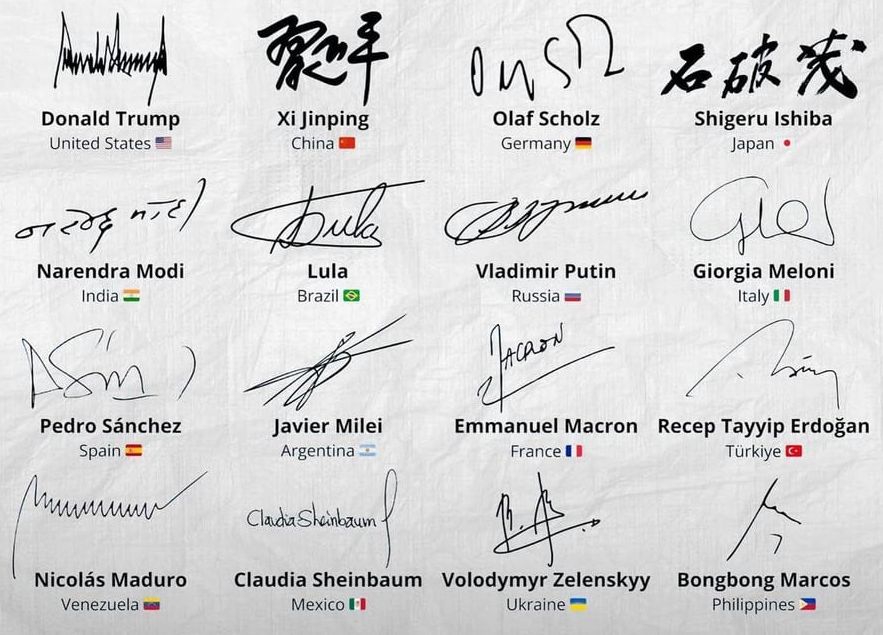 习近平 石破茂
Donald Trump Xi Jinping Olaf Scholz Shigeru Ishiba
United States China Germany Japan
Lula
Narendra Modi Lula Vladimir Putin Giorgia Meloni
India Brazil Russia Italy
MACRON
Pedro Sánchez Javier Milei Emmanuel Macron Recep Tayyip Erdoğan
Spain Argentina France Türkiye
Claudia Sheinbaum
Nicolás Maduro Claudia Sheinbaum Volodymyr Zelenskyy Bongbong Marcos
Venezuela Mexico Ukraine Philippines